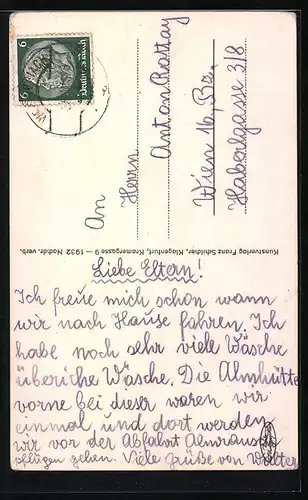 6
Deutsches Reich
6
An
Herrn
Anton Rattay
Wien 16, Bz.
Haberlgasse 3/8
Kunstverlag Franz Schilcher, Klagenfurt, Kromergasse 9 — 1932 Nachdr. verb.
Liebe Eltern!
Ich freue mich schon wann
wir nach Hause fahren. Ich
habe noch sehr viele Wäsche
überiche Wäsche. Die Almhütte
vorne bei dieser waren wir
einmal und dort werden
wir vor der Abfahrt Almraus
pflügen gehen. Viele Grüße von Walter